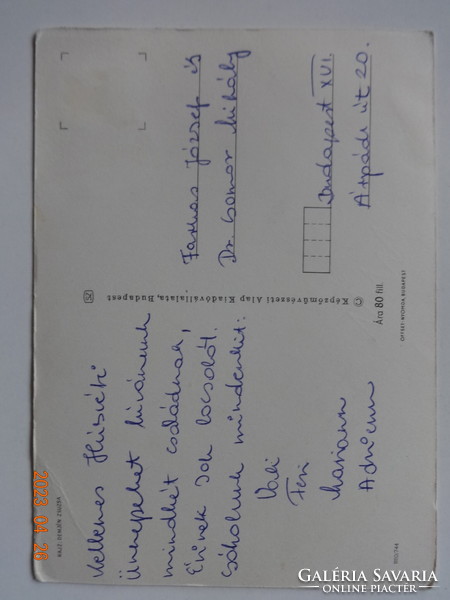 Kellemes Húsvéti
ünnepeket kívánunk
mindkét családnak,
Évinek sok locsolót.
csókolunk mindenkit:
Vali
Feri
Mariann
Adrienn
Farkas József és
Dr. Csomor Mihály
Budapest XVI.
Árpád út 20.
Képzőművészeti Alap Kiadóvállalata, Budapest
Ára 80 fill.
OFFSET-NYOMDA BUDAPEST
2023 04 26
GALÉRIA SAVARIA
ONLINE PIACTÉR